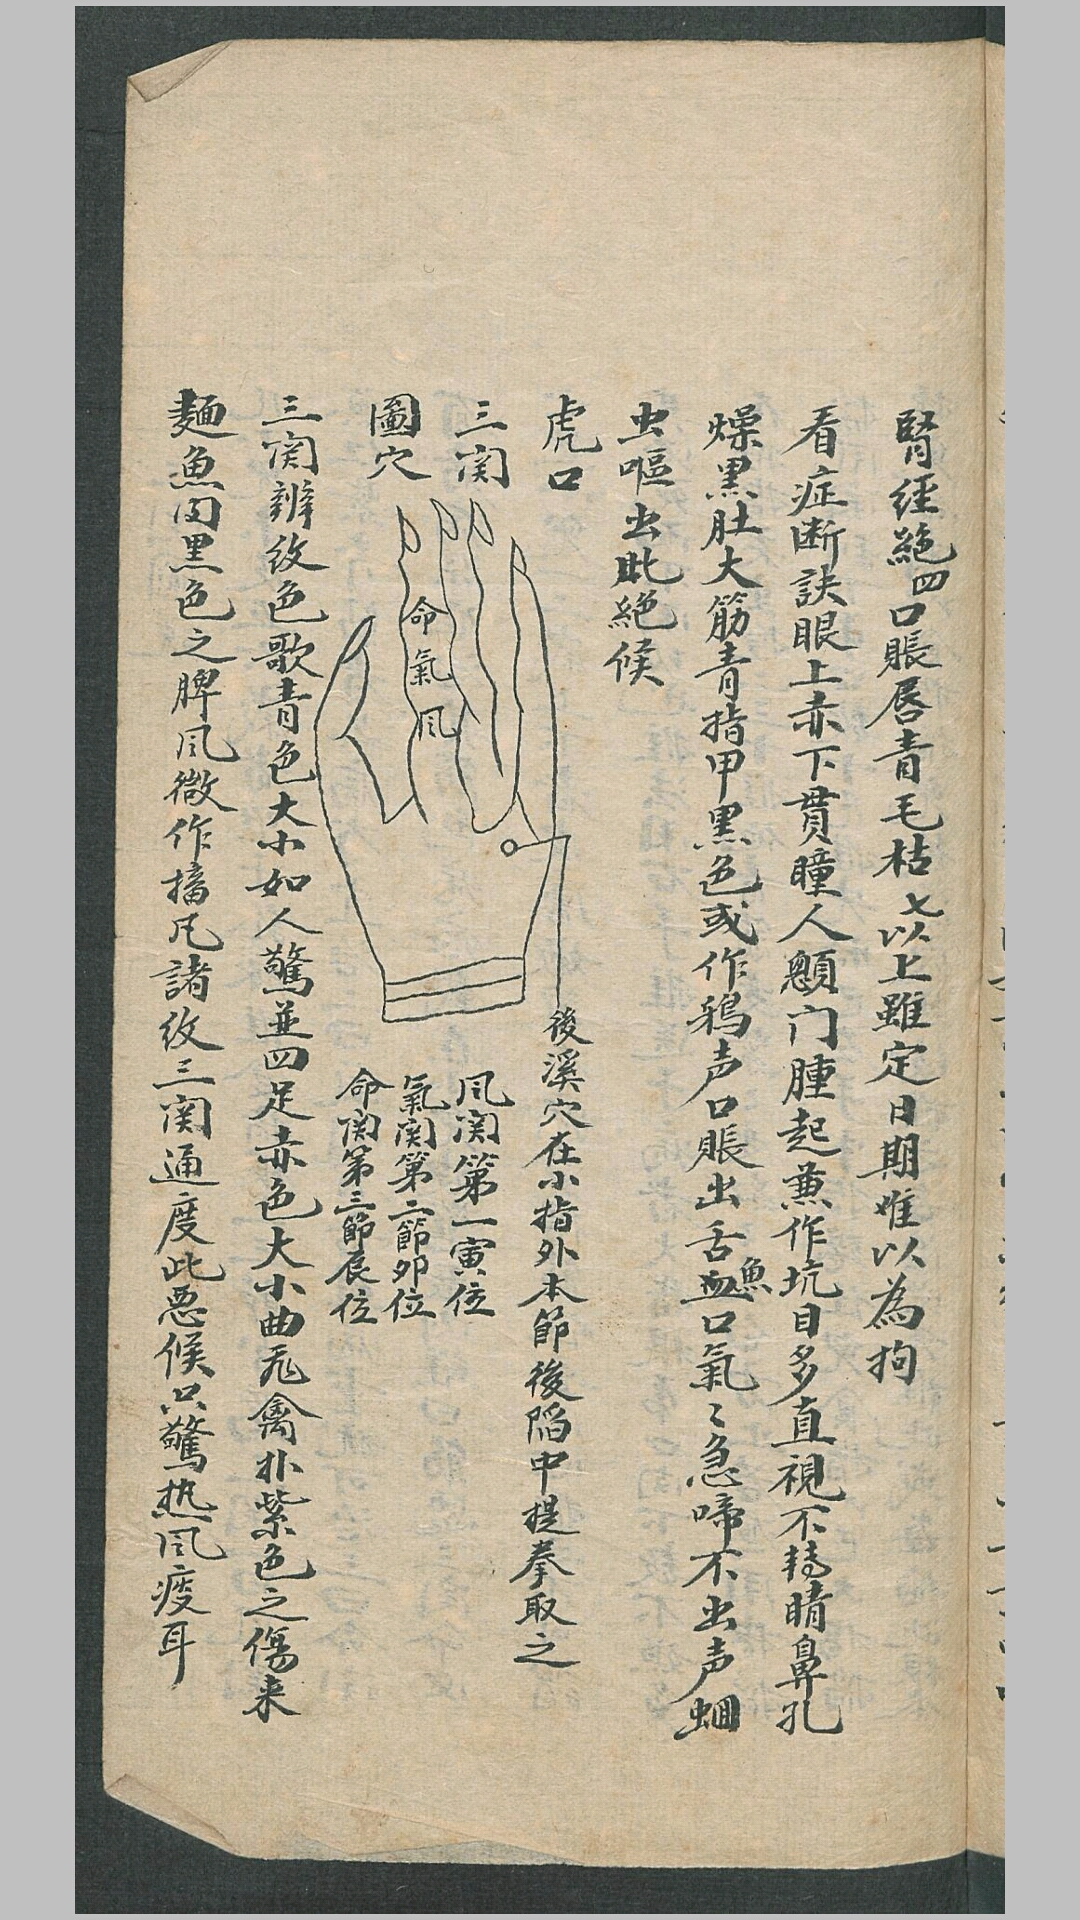 腎經絶四口賬唇青毛枯七以上雖定日期难以為拘
看症断訣眼上赤下貫瞳人顖门腫起兼作坑目多直視不转睛鼻孔
燥黑肚大筋青指甲黑色或作鴉声口賬出舌魚血口氣〻急啼不出声蛔
虫嘔出此絶候
虎口
三関
圖穴
命
氣
风
後溪穴在小指外本節後陷中提拳取之
风関第一寅位
氣関第二節卯位
命関第三節辰位
三関辨纹色歌青色大小如人驚並四足赤色大小曲飛禽扑紫色之傷来
麵魚肉黑色之脾风微作搐凡諸纹三関通度此恶候只驚热风痰耳